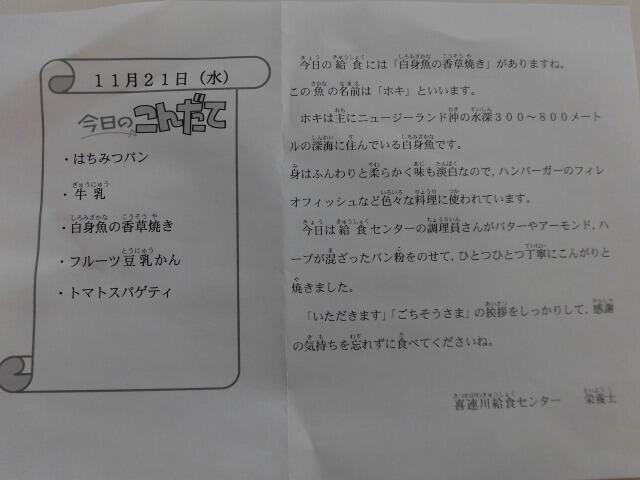 11月21日（水）
今日のこんだて
・はちみつパン
・牛乳
・白身魚の香草焼き
・フルーツ豆乳かん
・トマトスパゲティ
今日の給食には「白身魚の香草焼き」がありますね。
この魚の名前は「ホキ」といいます。
ホキは主にニュージーランド沖の水深300～800メート
ルの深海に住んでいる白身魚です。
身はふんわりと柔らかく味も淡白なので，ハンバーガーのフィレ
オフィッシュなど色々な料理に使われています。
今日は給食センターの調理員さんがバターやアーモンド，ハ
ーブが混ざったパン粉をのせて，ひとつひとつ丁寧にこんがりと
焼きました。
「いただきます」「ごちそうさま」の挨拶をしっかりして，感謝
の気持ちを忘れずに食べてくださいね。
喜連川給食センター　栄養士